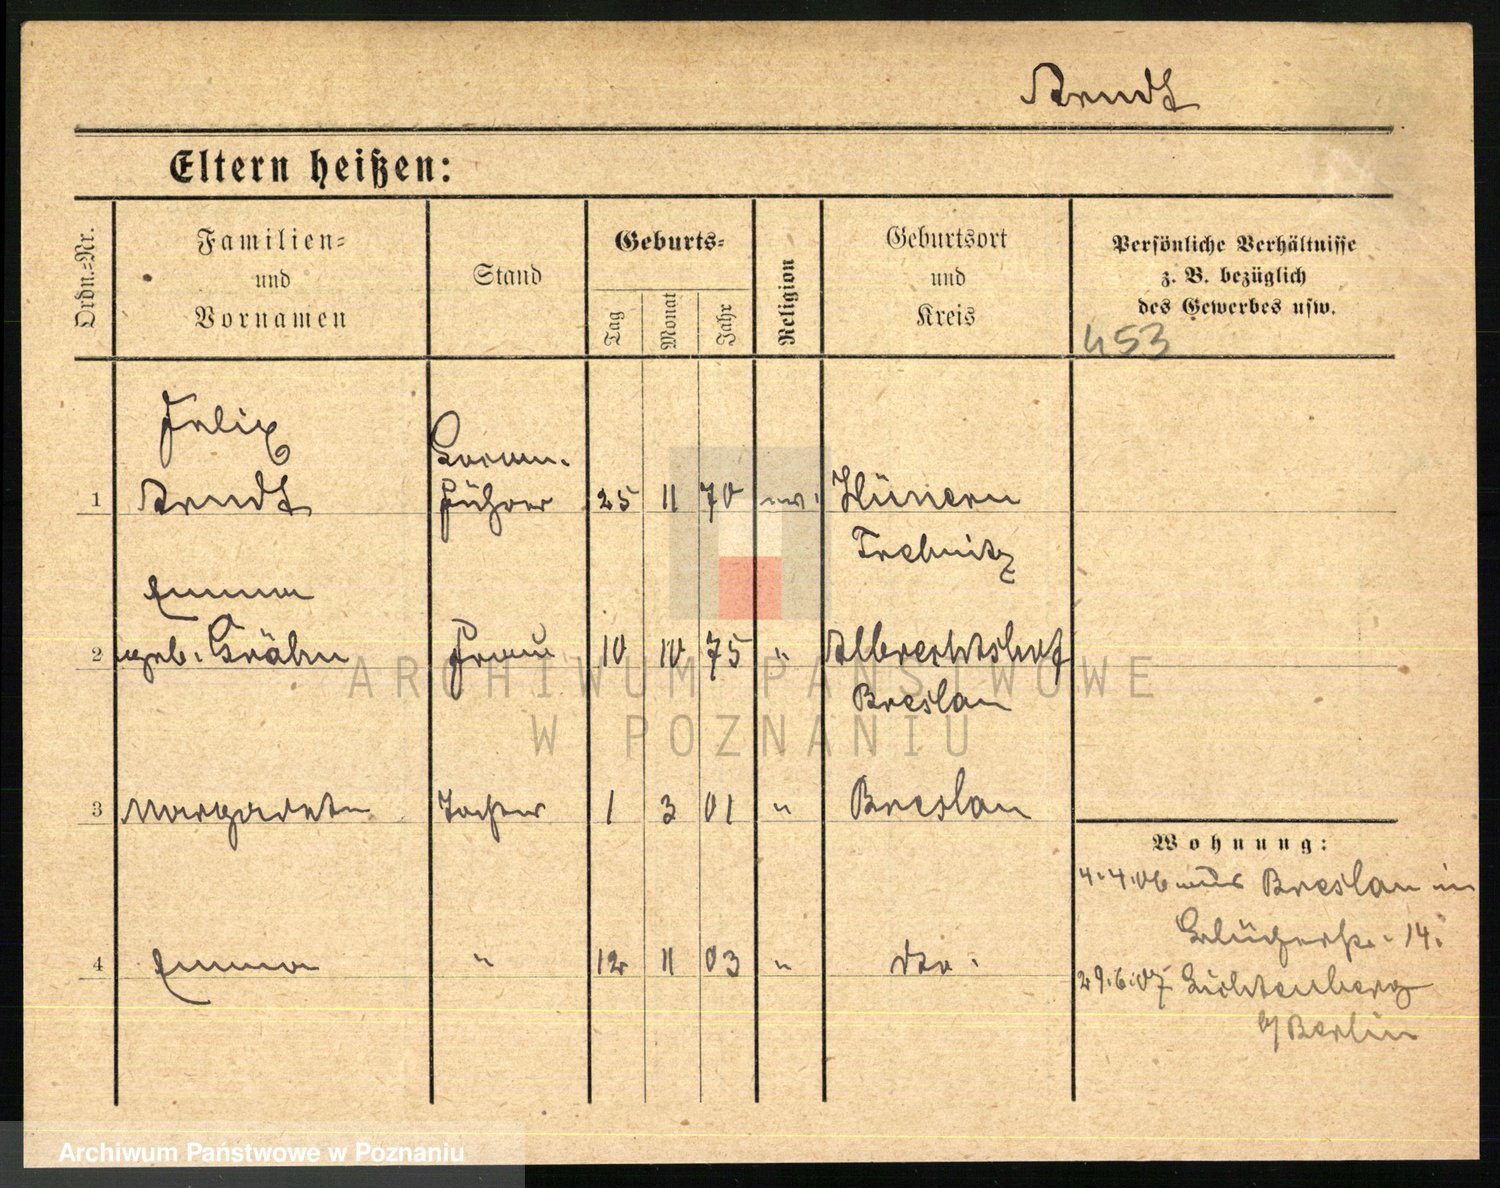 Arndt
Eltern heißen:
Ordn.=Nr.
Familien=
und
Vornamen
Stand
Geburts=
Tag
Monat
Jahr
Religion
Geburtsort
und
Kreis
Persönliche Verhältnisse
z. B. bezüglich
des Gewerbes usw.
453
Felix
1 Arndt führer 25 11 70 ev. Hünern
Trebnitz
Emma
2 geb. Frau 10 10 75 " Albrechtshof
Breslau
3 Margarete Tochter 1 3 01 " Breslau
Wohnung:
4.4.06 aus Breslau in
14.
4 Emma " 12 11 03 " dto.
29.6.07 Lichtenberg
b/ Berlin
ARCHIWUM PAŃSTWOWE
W POZNANIU
Archiwum Państwowe w Poznaniu